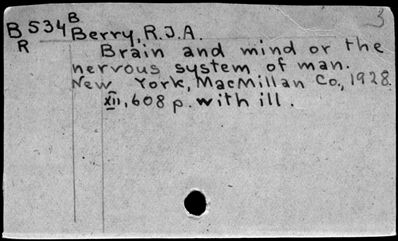 B534 B 3
R Berry, R.J.A.
Brain and mind or the
nervous system of man.
New York, MacMillan Co., 1928.
XII, 608 p. with ill.